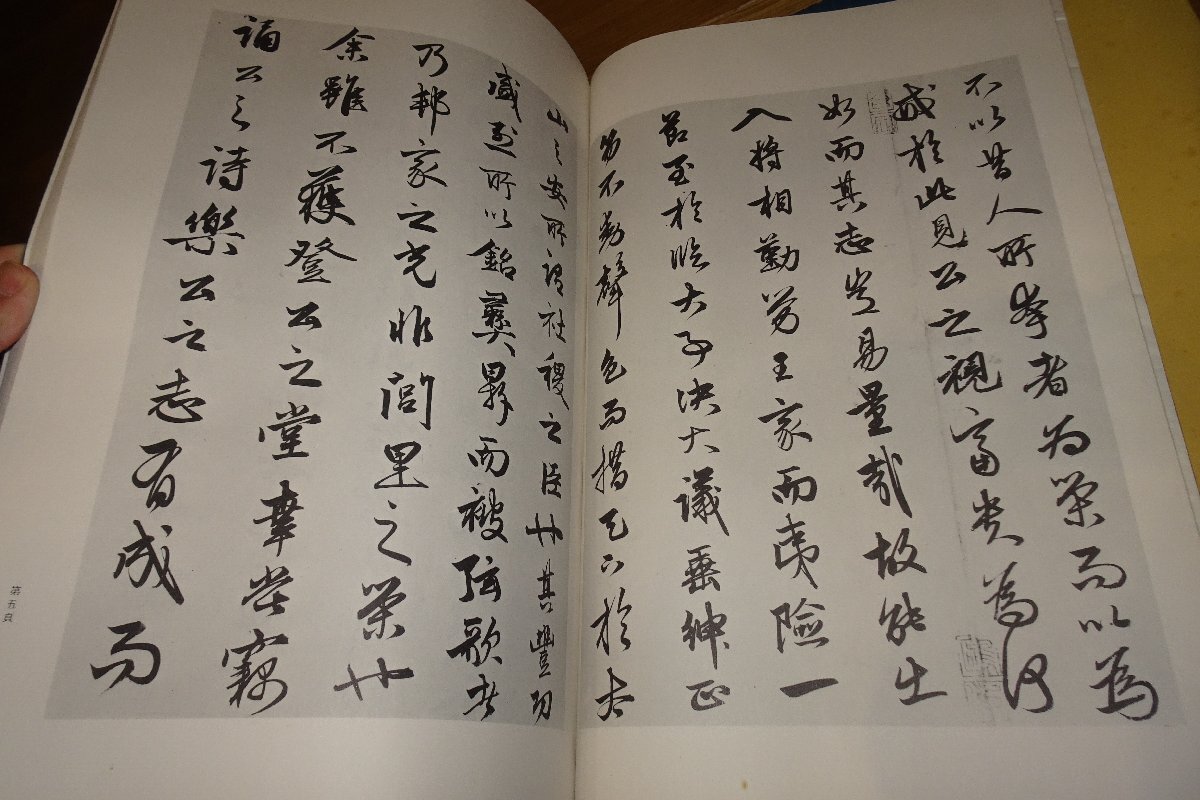 不以昔人所夸者為榮而以為
戒於此見公之視富貴為何
如而其志豈易量哉故能出
入將相勤勞王家而夷險一
節至於臨大事決大議垂紳正
笏不動聲色而措天下於泰
山之安所謂社稷之臣也其豐功
盛烈所以銘彝鼎而被弦歌者
乃邦家之光非閭里之榮也
余雖不獲登公之堂幸嘗竊
誦公之詩樂公之志有成而
第五頁